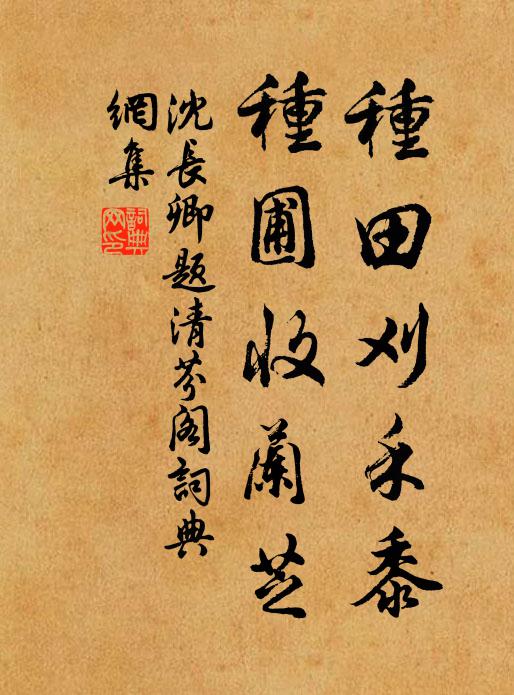 種田刈禾黍
種圃收蘭芝
沈長卿題清芬阁詞典
網集
詞典
网印